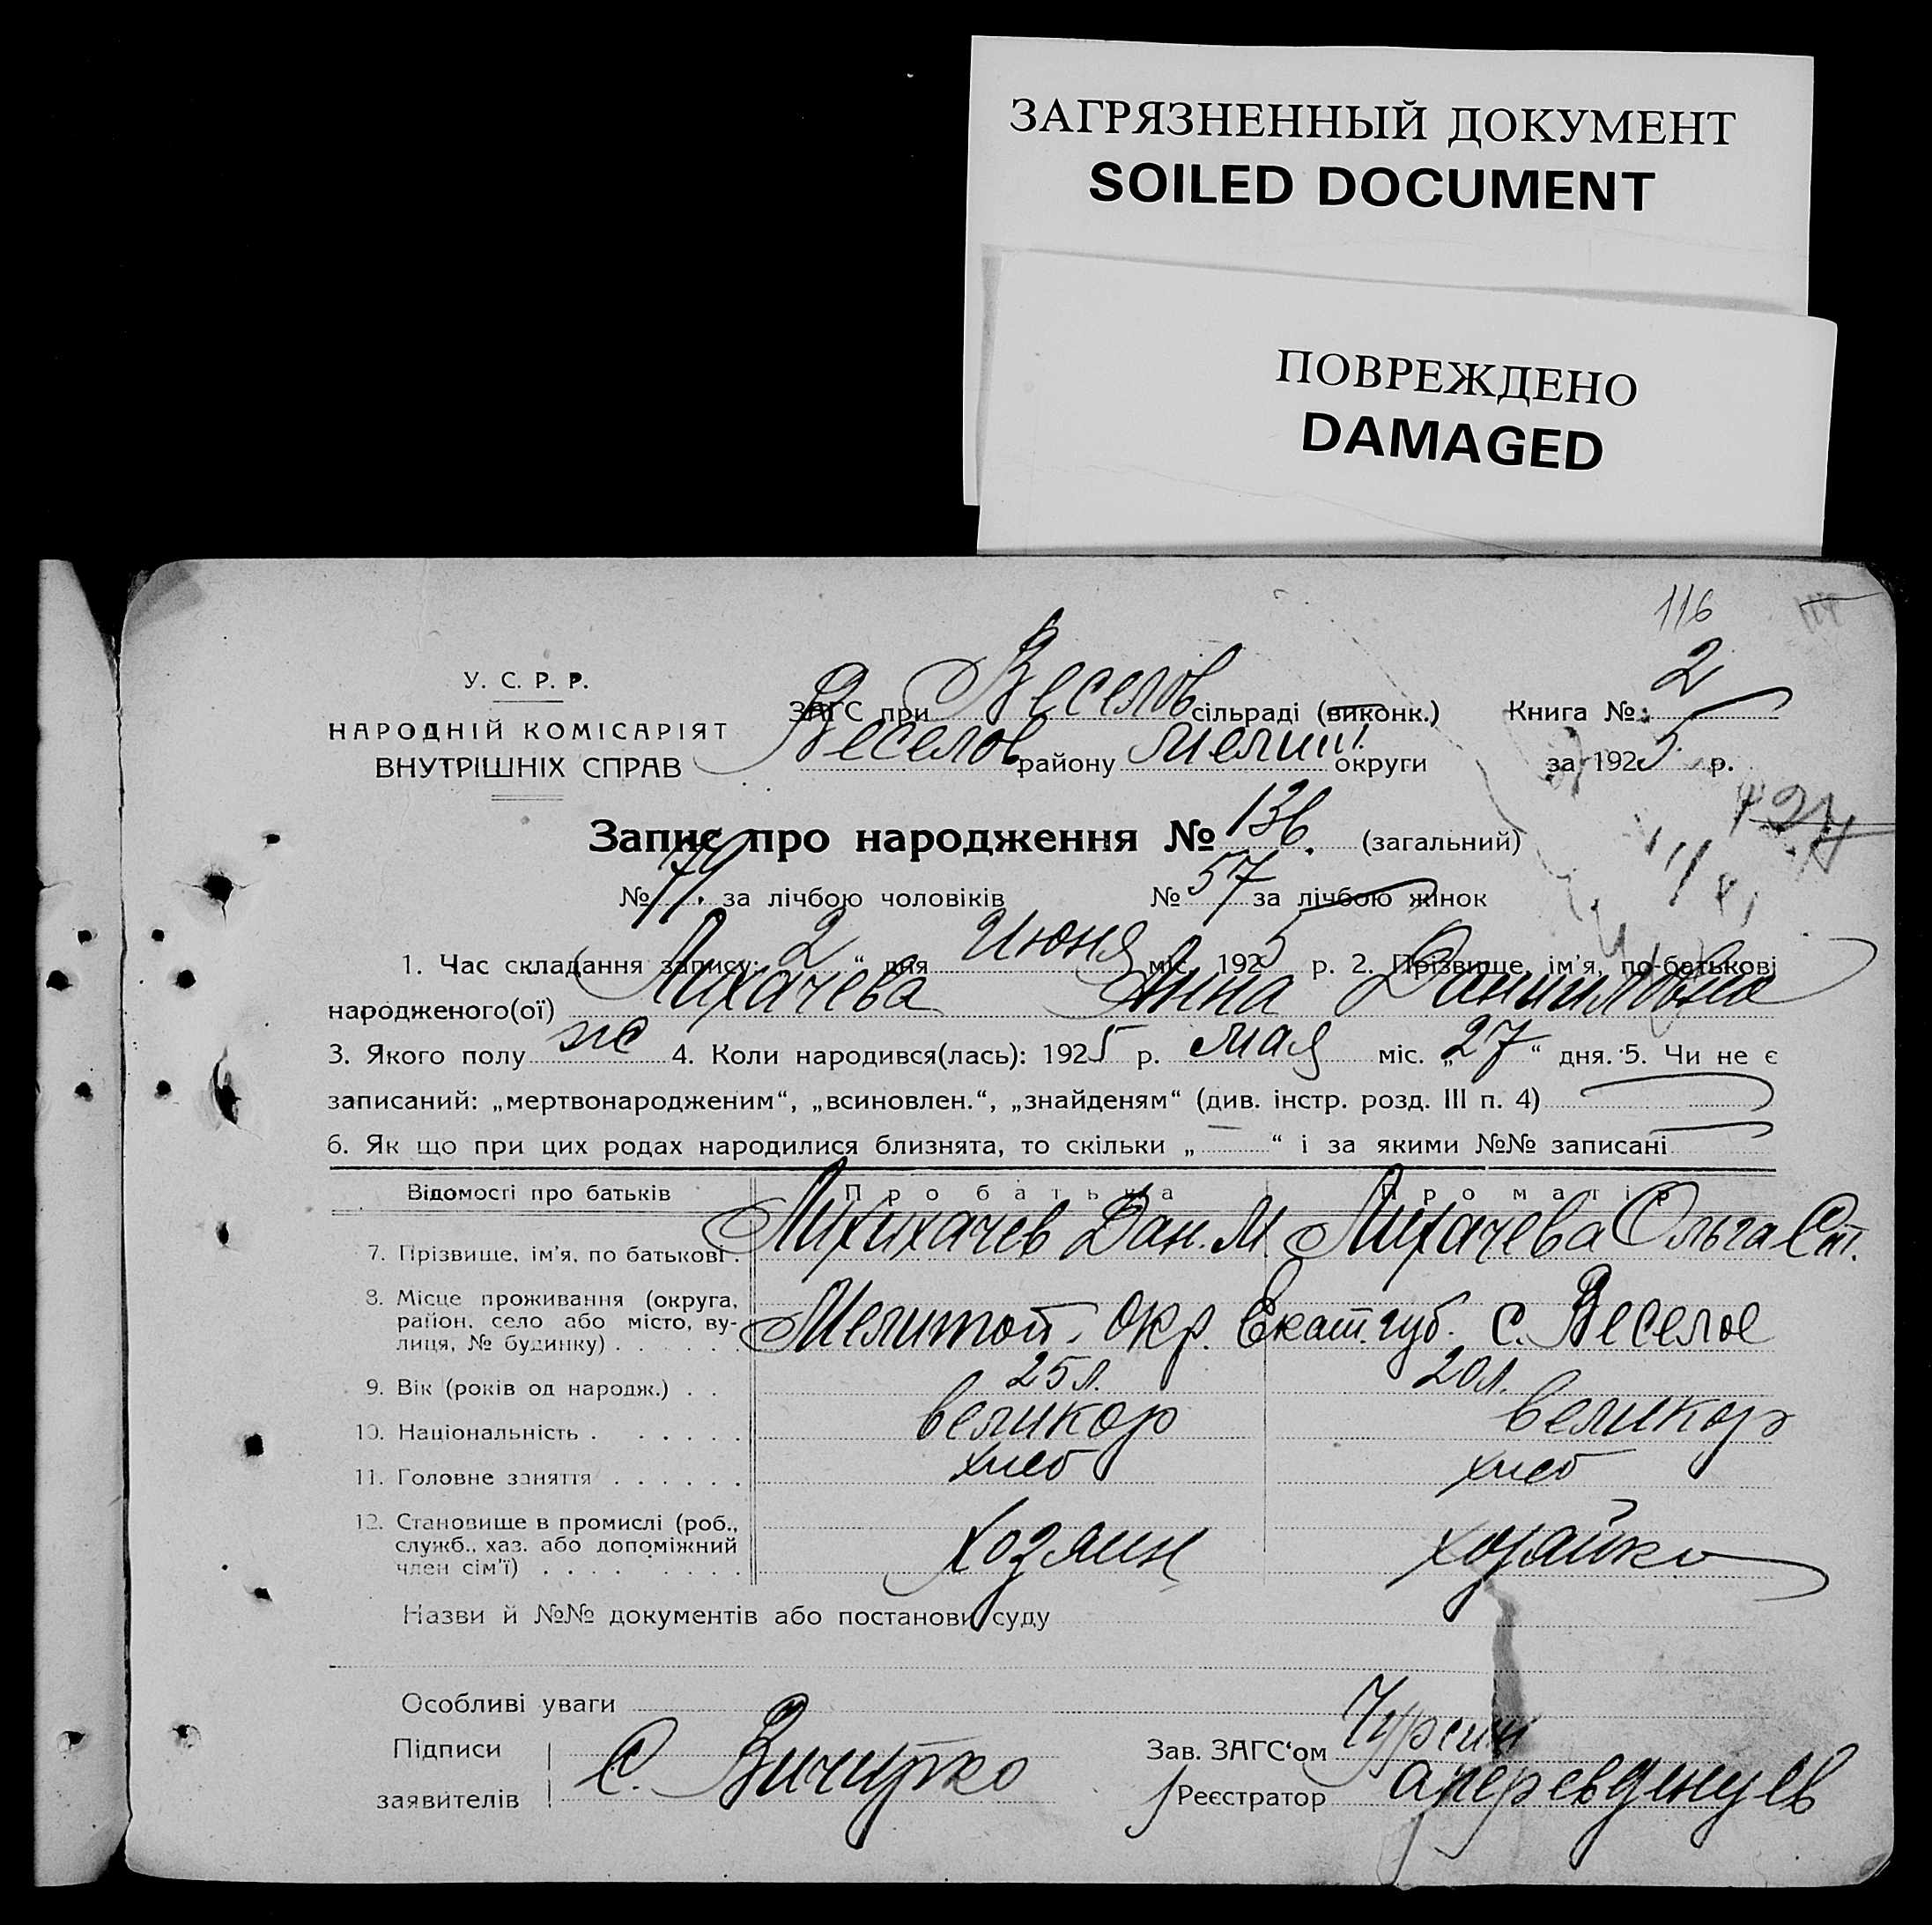 ЗАГРЯЗНЕННЫЙ ДОКУМЕНТ
SOILED DOCUMENT
ПОВРЕЖДЕНО
DAMAGED
116
У. С. Р. Р.
НАРОДНІЙ КОМІСАРІЯТ
ВНУТРІШНІХ СПРАВ
ЗАГС при Веселов сільраді (виконк.) Книга № 2
Веселов району Мелит. округи за 1925 р.
Запис про народження № 136. (загальний)
№ 79. за лічбою чоловіків № 57 за лічбою жінок
1. Час складання запису: 2 “ дня Июня міс. 1925 р. 2. Прізвище, ім’я, по-батькові
народженого(ої) Лихачева Анна Данииловна
3. Якого полу ж 4. Коли народився(лась): 1925 р. мая міс. „27“ дня. 5. Чи не є
записаний: „мертвонародженим“, „всиновлен.“, „знайденям“ (див. інстр. розд. III п. 4)
6. Як що при цих родах народилися близнята, то скільки „ “ і за якими №№ записані
Відомості про батьків Про батька Про матір
7. Прізвище, ім’я, по батькові . Лихихачев Дан. М. Лихачева Ольга Ст.
8. Місце проживання (округа,
район, село або місто, ву-
лиця, № будинку) . . . . . . Мелитоп. окр. Екат. губ. с. Веселое
9. Вік (років од народж.) . . 25 л. 20 л.
10. Національність . . . . . . великор великор
11. Головне заняття . . . . . . хлеб хлеб
12. Становище в промислі (роб.,
служб., хаз. або допоміжний
член сім’ї) . . . . . . . . Хозяин хозяйка
Назви й №№ документів або постанови суду
Особливі уваги
Підписи
заявителів С.
Зав. ЗАГС‘ом Чурсин
Реєстратор